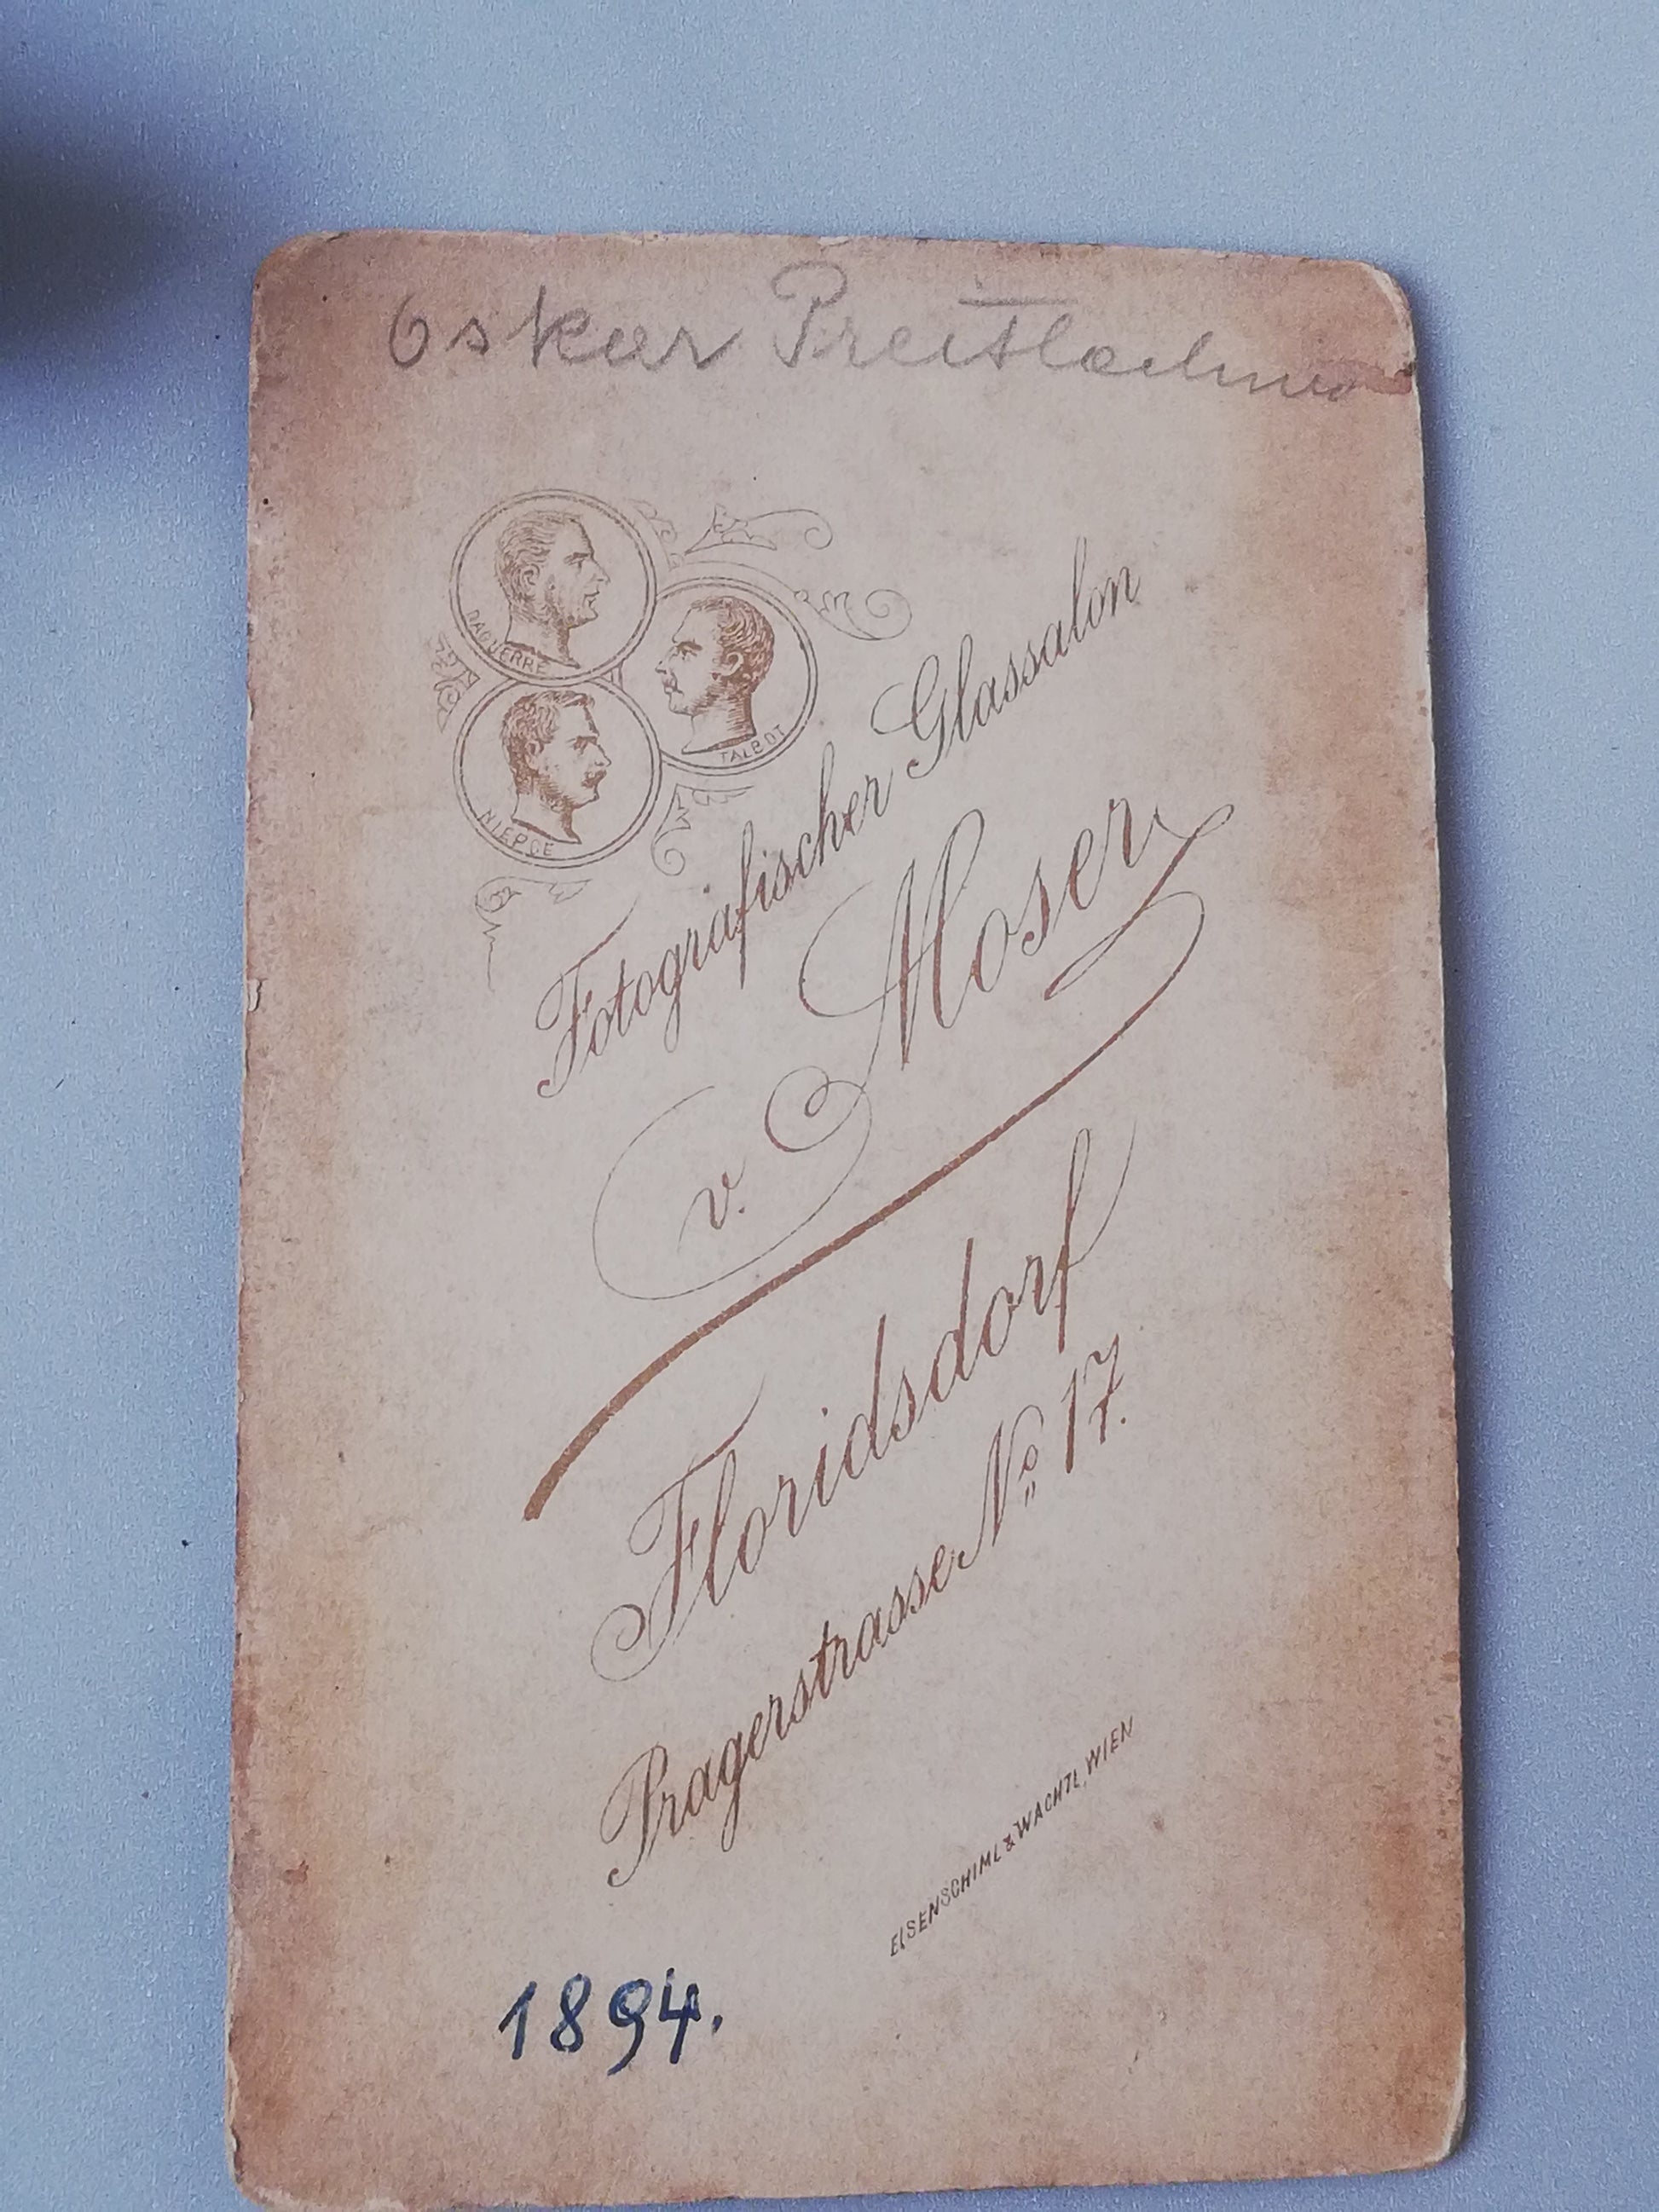 Oskar
DAGUERRE
TALBOT
NIEPCE
Fotografischer Glassalon
v. Moser
Floridsdorf
Pragerstrasse No 17.
EISENSCHIML & WACHTL, WIEN
1894.